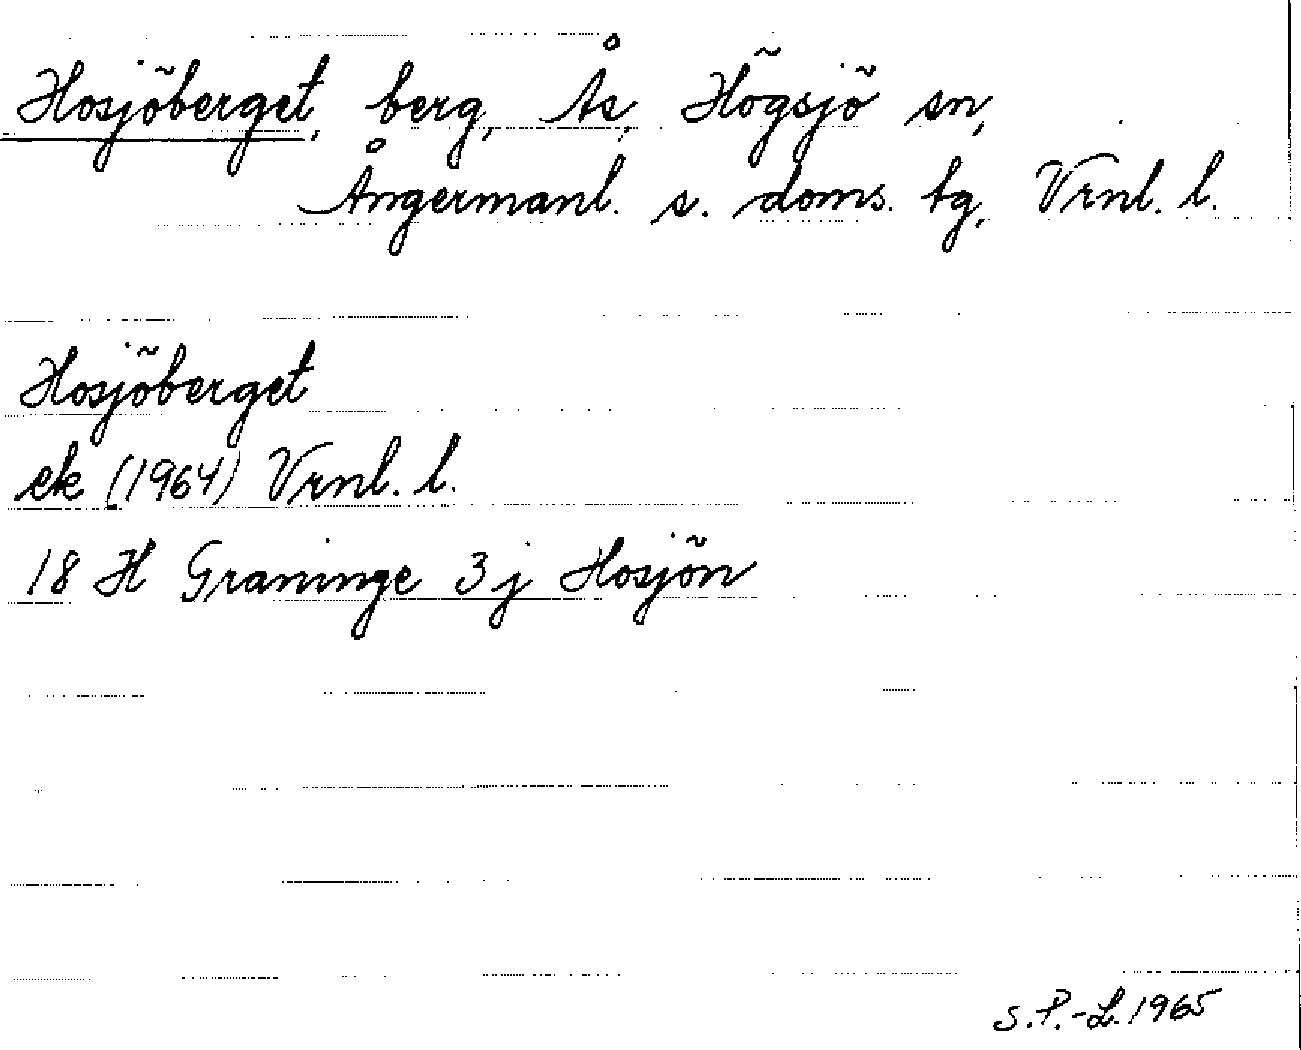 Hosjöberget, berg, Ås, Högsjö sn,
Ångermanl. s. doms. tg, Vrnl. l.
Hosjöberget
ek (1964) Vrnl. l.
18 H Graninge 3j Hosjön
S.P.-L. 1965